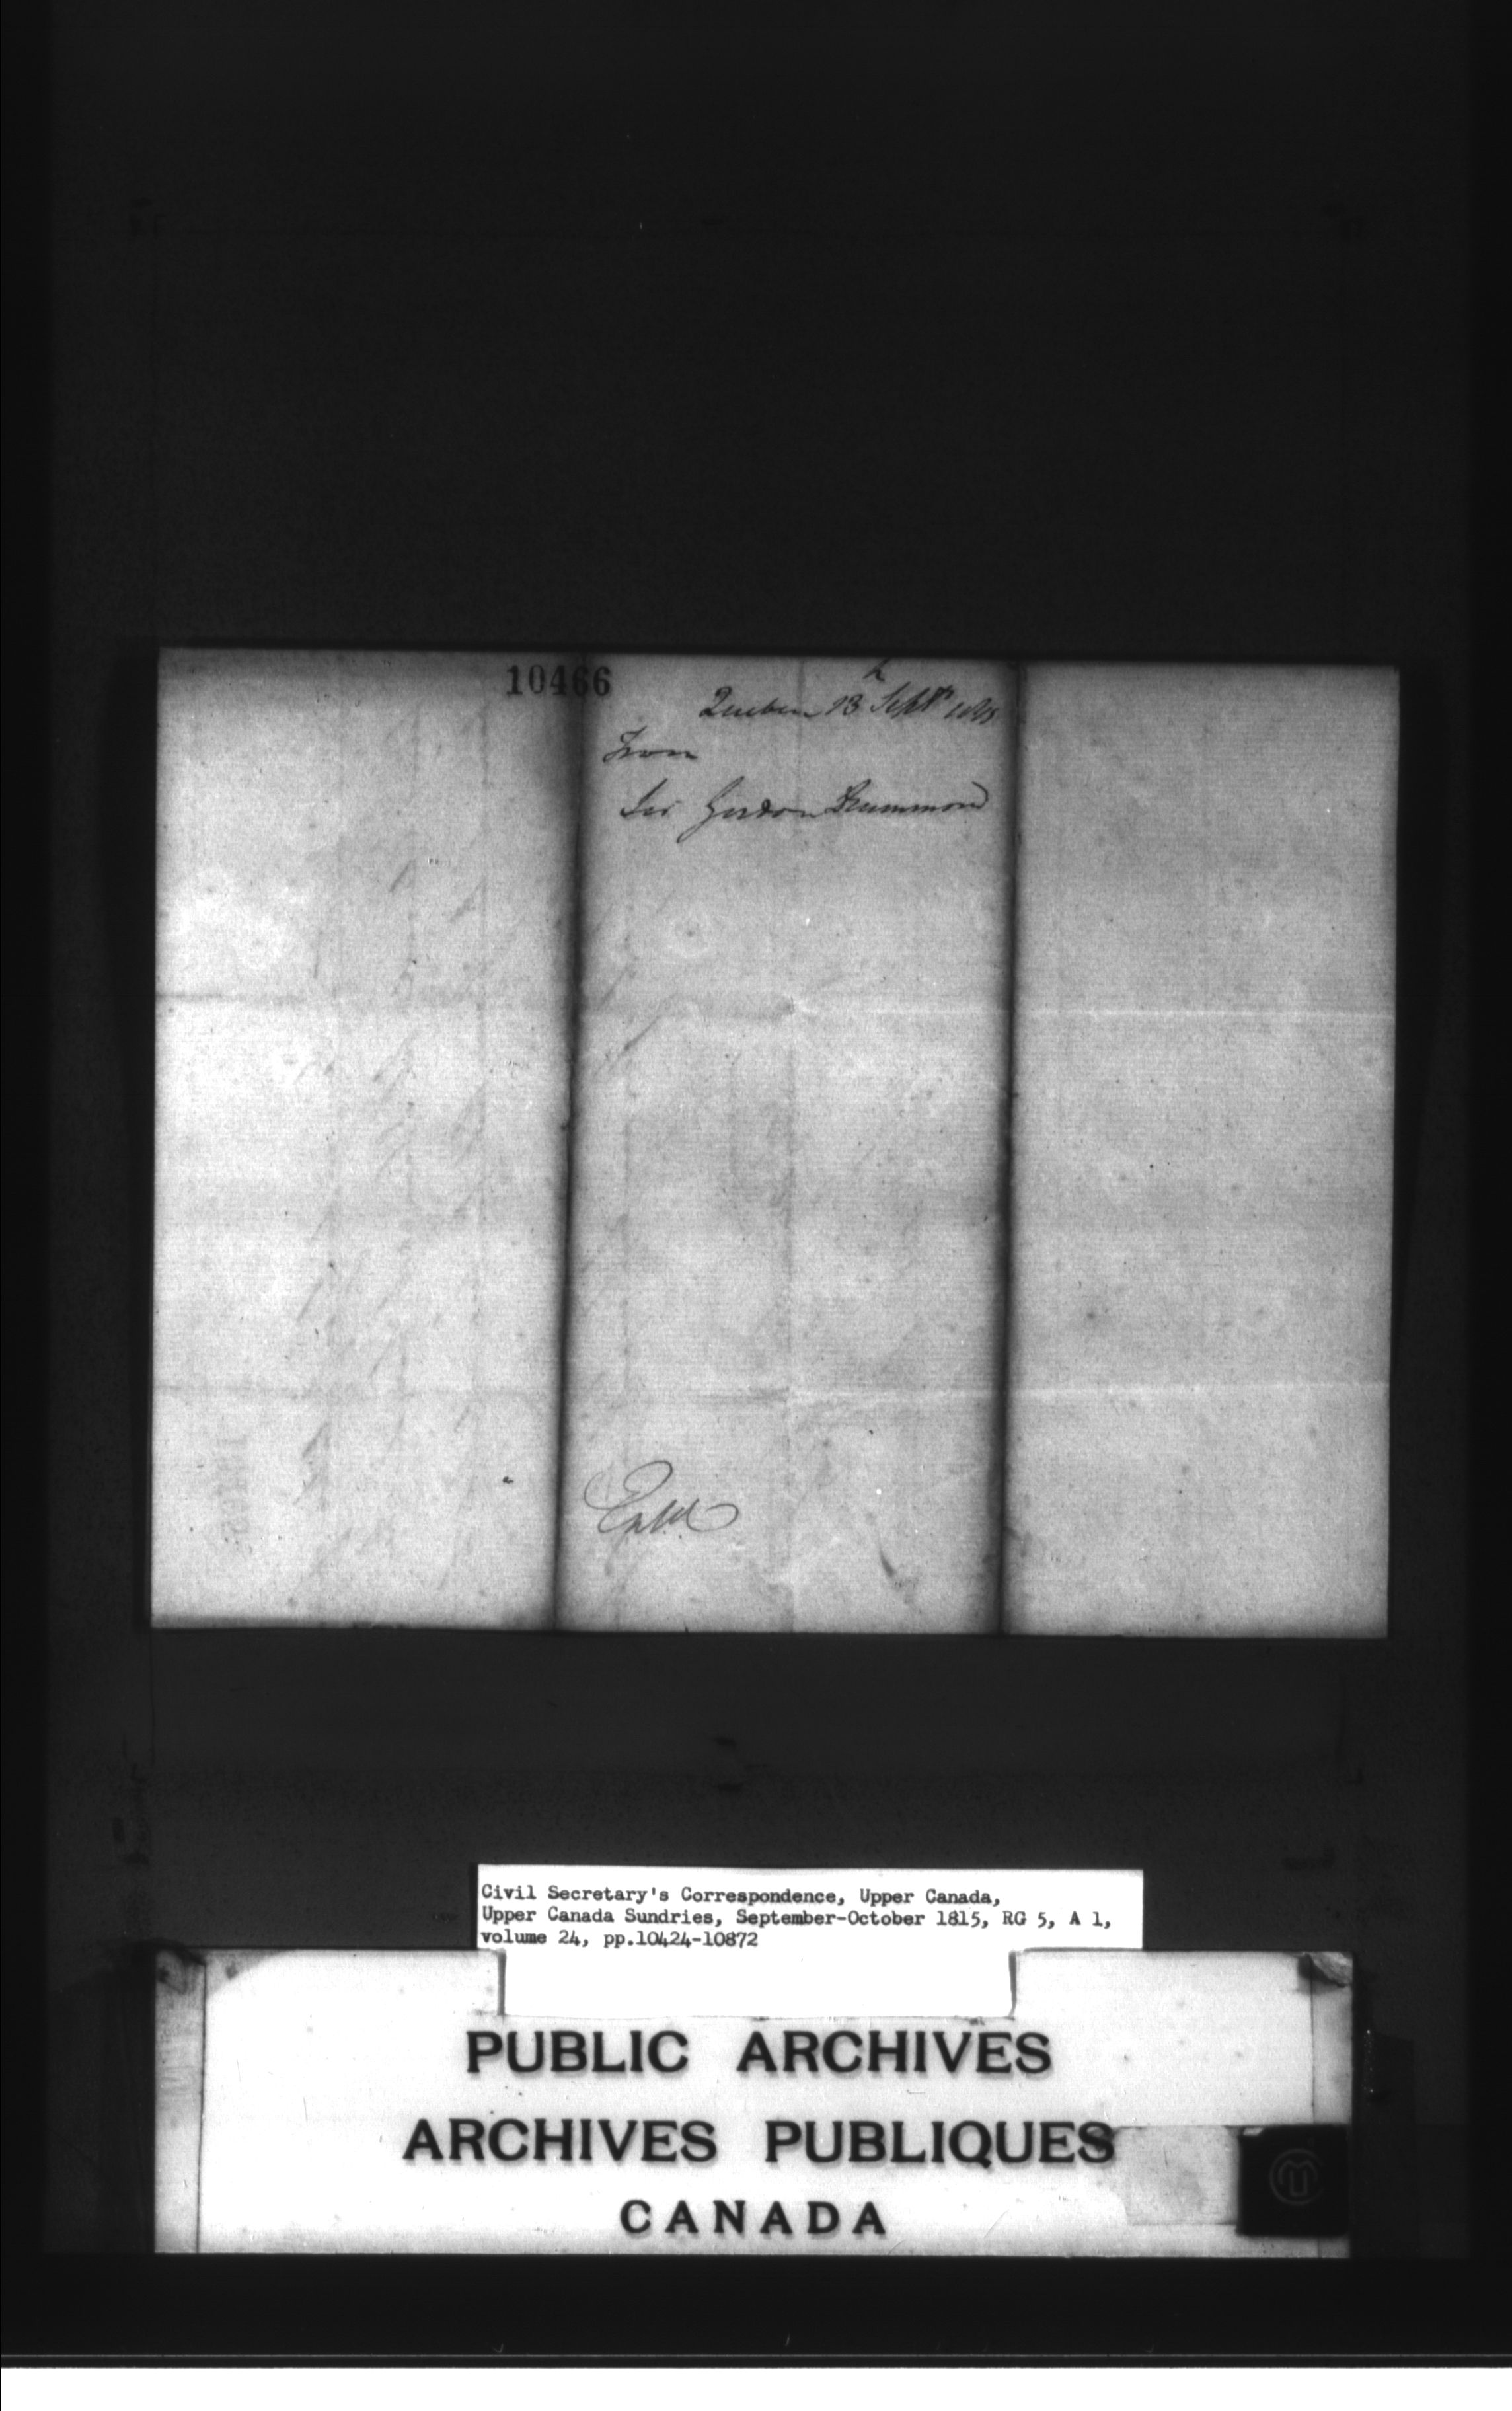 10466
Quebec 13 Septr 1815
From
Sir Gordon Drummond
Entd
Civil Secretary's Correspondence, Upper Canada,
Upper Canada Sundries, September-October 1815, RG 5, A 1,
volume 24, pp.10424-10872
PUBLIC ARCHIVES
ARCHIVES PUBLIQUES
CANADA